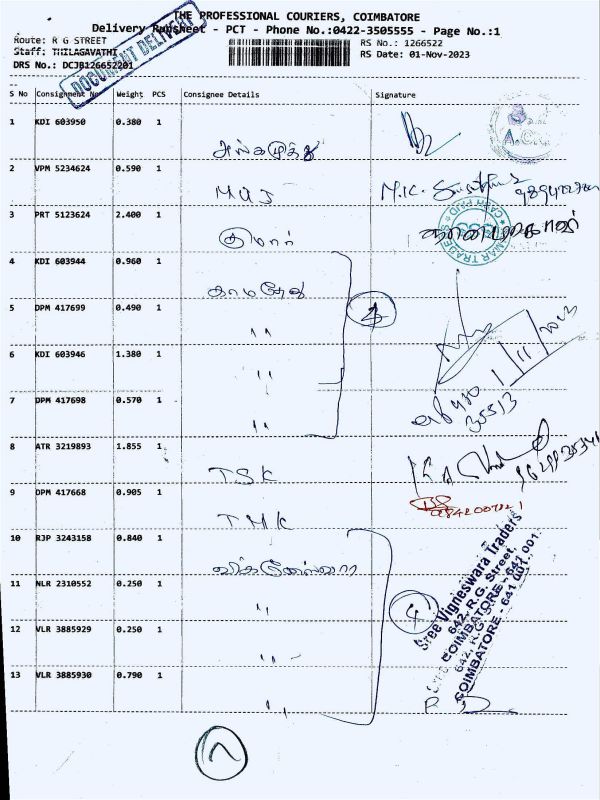 THE PROFESSIONAL COURIERS, COIMBATORE
Delivery Runsheet - PCT - Phone No.:0422-3505555 - Page No.:1
Route: R G STREET
RS No.: 1266522
Staff: THILAGAVATHI
RS Date: 01-Nov-2023
DRS No.: DCJB126652201
DOCUMENT DELIVERY
S No Consignment No Weight PCS Consignee Details Signature
1 KDI 603950 0.380 1
2 VPM 5234624 0.590 1 M.K.
3 PRT 5123624 2.400 1 குமார்
CASH PAID
4 KDI 603944 0.960 1 காமதேனு
5 DPM 417699 0.490 1 "
6 KDI 603946 1.380 1 "
1/11/2023
7 DPM 417698 0.570 1 "
35513
8 ATR 3219893 1.855 1 TSK
9 DPM 417668 0.905 1 TMK
10 RJP 3243158 0.840 1
11 NLR 2310552 0.250 1 "
4
12 VLR 3885929 0.250 1 "
13 VLR 3885930 0.790 1 "
Sree Vigneswara Traders
642, R.G. Street,
COIMBATORE - 641 001.
7